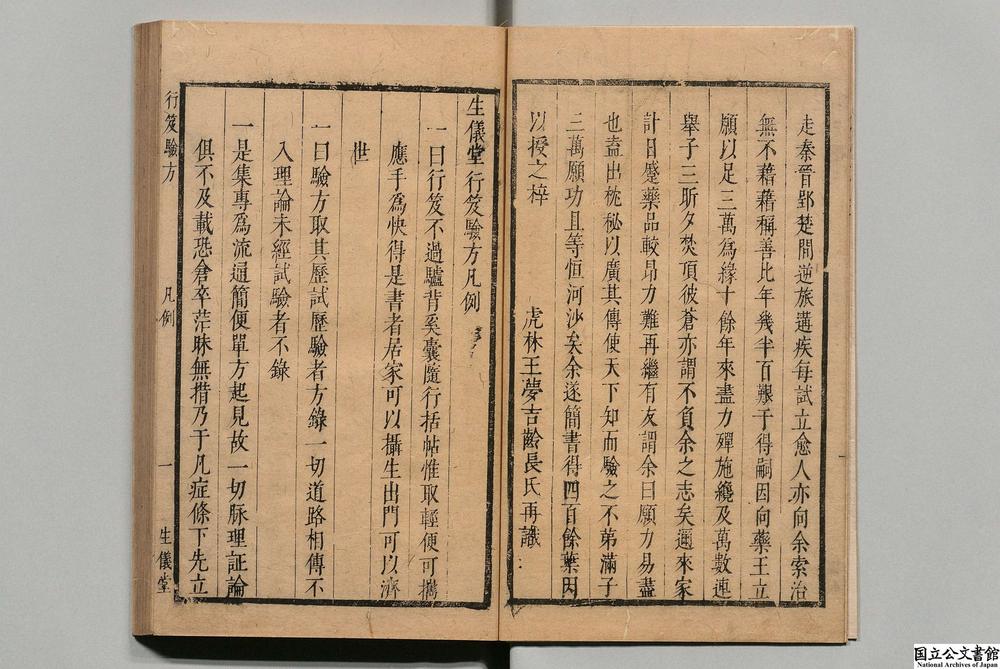 走秦晉郢楚間逆旅遘疾每試立愈人亦向余索治
無不藉藉稱善比年幾半百艱于得嗣因向藥王立
願以足三萬爲緣十餘年來盡力殫施纔及萬數連
舉子三昕夕焚頂彼蒼亦謂不負余之志矣邇來家
計日蹙藥品較昂力難再繼有友謂余曰願力易盡
也盍出枕秘以廣其傳使天下知而驗之不第滿子
三萬願功且等恒河沙矣余遂簡書得四百餘葉因
以授之梓
虎林王夢吉齡長氏再識
生儀堂行笈驗方凡例
一曰行笈不過驢背奚囊隨行括帖惟取輕便可攜
應手爲快得是書者居家可以攝生出門可以濟
世
一曰驗方取其歷試歷驗者方錄一切道路相傳不
入理論未經試驗者不錄
一是集專爲流通簡便單方起見故一切脉理証論
俱不及載恐倉卒茫昧無措乃于凡症條下先立
行笈驗方
凡例
一
生儀堂
国立公文書館
National Archives of Japan